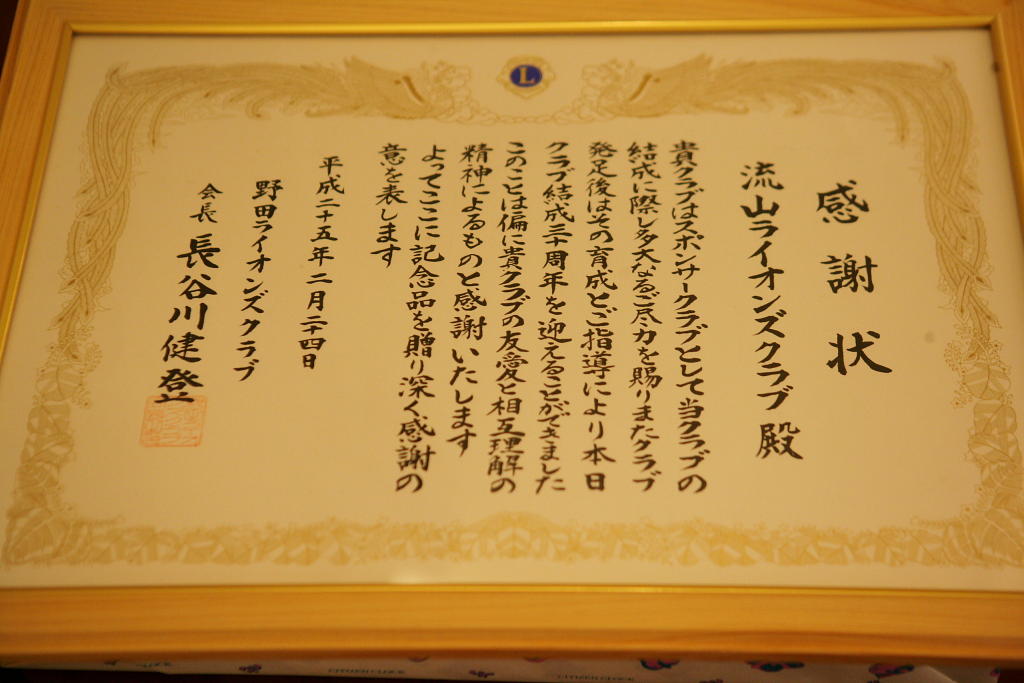 L
感謝状
流山ライオンズクラブ殿
貴クラブはスポンサークラブとして当クラブの
結成に際し多大なるご尽力を賜りまたクラブ
発足後はその育成とご指導により本日
クラブ結成三十周年を迎えることができました
このことは偏に貴クラブの友愛と相互理解の
精神によるものと感謝いたします
よってここに記念品を贈り深く感謝の
意を表します
平成二十五年二月二十四日
野田ライオンズクラブ
会長 長谷川健登